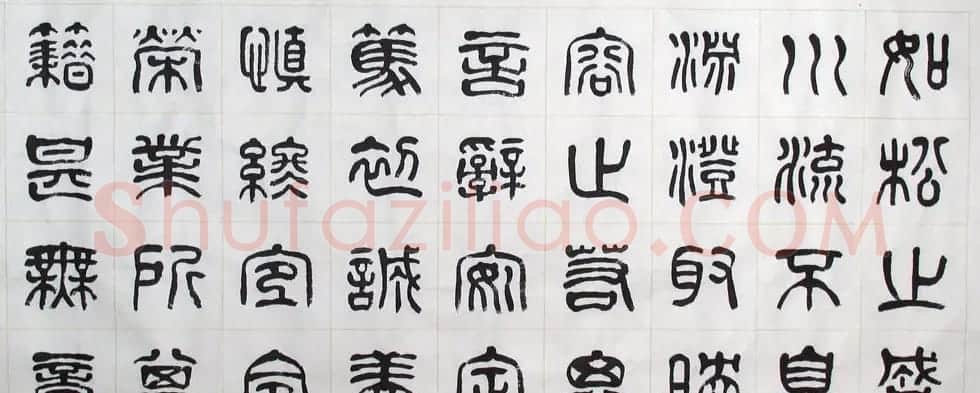 如松之盛
川流不息
淵澄取映
容止若思
言辭安定
篤初誠美
慎終宜令
榮業所基
籍甚無竟
Shufaziliao.COM